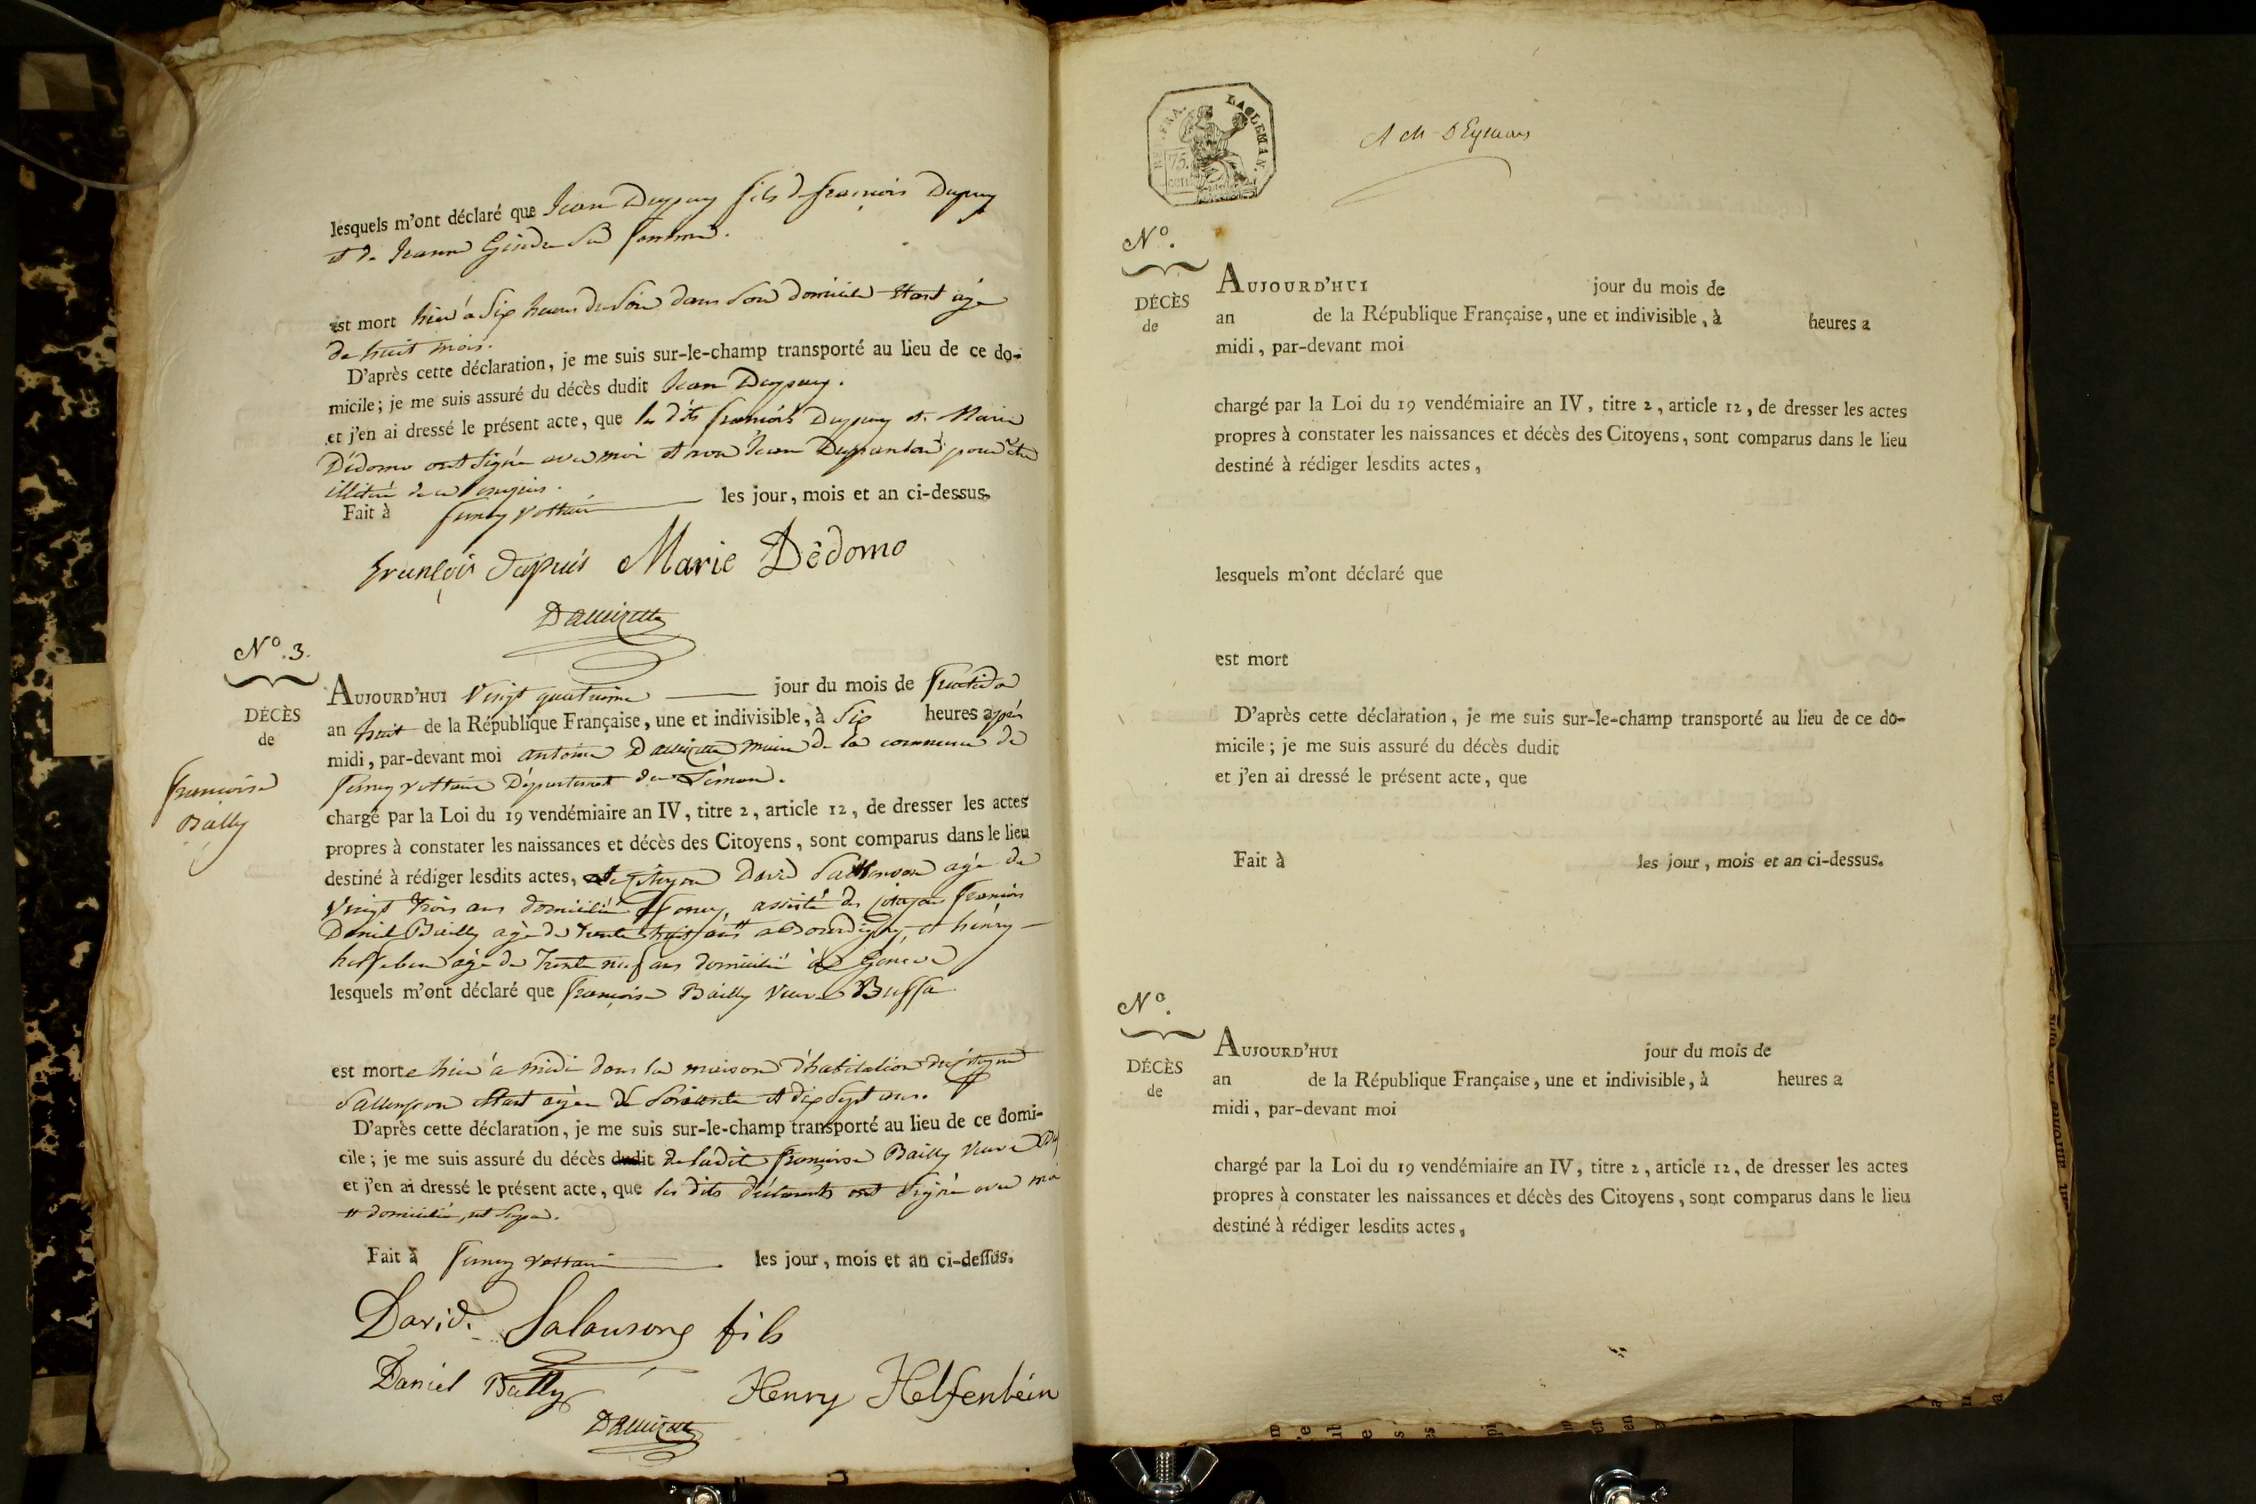 lesquels m'ont déclaré que Jean Dupuy fils de françois Dupuy
et de Jeanne sa femme.
est mort hier à six heures du soir dans son domicile étant âgé
de huit mois.
D'après cette déclaration, je me suis sur-le-champ transporté au lieu de ce do-
micile; je me suis assuré du décès dudit Jean Dupuy.
et j'en ai dressé le présent acte, que les dits françois Dupuy et Marie
Dédomo ont signé avec moi et non Jean pour être
illitéré de ce requis.
Fait à ferney voltaire les jour, mois et an ci-dessus.
françois dupuis Marie Dêdomo
No. 3.
DÉCÈS
de
francoise
Bailly
AUJOURD'HUI Vingt quatrieme jour du mois de fructidor
an huit de la République Française, une et indivisible, à six heures après
midi, par-devant moi antoine maire de la commune de
ferney voltaire Département du Léman.
chargé par la Loi du 19 vendémiaire an IV, titre 2, article 12, de dresser les actes
propres à constater les naissances et décès des Citoyens, sont comparus dans le lieu
destiné à rédiger lesdits actes, le Citoyen David agé de
Vingt trois ans domicilié à ferney, assisté des citoyens françois
Daniel Bailly agé de trente huit ans # a Bourdigny, et hénry
agé de trente neuf ans domicilié à Geneve
lesquels m'ont déclaré que françoise Bailly Veuve Buffa
est morte hier à midi dans la maison d'habitation du citoyen
étant agée de soixante et dix sept ans. #
D'après cette déclaration, je me suis sur-le-champ transporté au lieu de ce domi-
cile; je me suis assuré du décès dudit de ladite françoise Bailly Veuve
et j'en ai dressé le présent acte, que les dits déclarants ont signé avec moi
# domicilié,
Fait à ferney voltaire les jour, mois et an ci-dessus.
David. Salausong fils
Daniel Bally Henry Helfenbéin
75.
CENT.
No.
DÉCÈS
de
AUJOURD'HUI jour du mois de
an de la République Française, une et indivisible, à heures a
midi, par-devant moi
chargé par la Loi du 19 vendémiaire an IV, titre 2, article 12, de dresser les actes
propres à constater les naissances et décès des Citoyens, sont comparus dans le lieu
destiné à rédiger lesdits actes,
lesquels m'ont déclaré que
est mort
D'après cette déclaration, je me suis sur-le-champ transporté au lieu de ce do-
micile; je me suis assuré du décès dudit
et j'en ai dressé le présent acte, que
Fait à les jour, mois et an ci-dessus.
No.
DÉCÈS
de
AUJOURD'HUI jour du mois de
an de la République Française, une et indivisible, à heures a
midi, par-devant moi
chargé par la Loi du 19 vendémiaire an IV, titre 2, article 12, de dresser les actes
propres à constater les naissances et décès des Citoyens, sont comparus dans le lieu
destiné à rédiger lesdits actes,